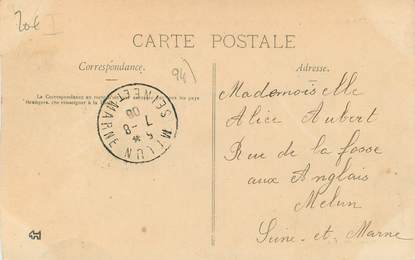 20€ I
CARTE POSTALE
Correspondance.
Adresse.
94)
La Correspondance au
pays
étrangers. (se renseigner à la
MELUN
SEINE-ET-MARNE
7-8
08
Mademoiselle
Alice Aubert
Rue de la fosse
aux Anglais
Melun
Seine-et-Marne